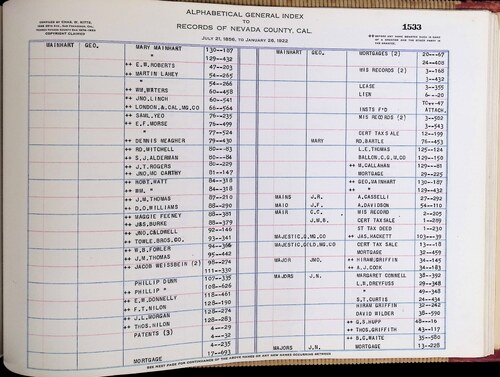 ALPHABETICAL GENERAL INDEX
TO
RECORDS OF NEVADA COUNTY, CAL.
JULY 21, 1856, TO JANUARY 26, 1922
1533
COPYRIGHT CLAIMED
MAINHART GEO. MARY MAINHART 130--187
" 129--432
++ E.W.ROBERTS 47--203
++ MARTIN LAHEY 54--265
" 54--266
++ WM.WATERS 60--458
++ JNO.LINCH 60--541
++ LONDON.& CAL.MG.CO 66--564
++ SAML.YEO 76--235
++ E.F.MORSE 76--499
" 77--524
++ DENNIS MEAGHER 79--430
++ RD.MITCHELL 80--83
++ S.J.ALDERMAN 80--84
++ J.T.ROGERS 80--229
++ JNO.MC CARTHY 81--147
++ ROBT.WATT 84--318
++ WM. " 84--318
++ J.M.THOMAS 87--210
++ D.O.WILLIAMS 88--290
++ MAGGIE FEENEY 88--381
++ JAS.BURKE 88--379
++ JNO.CALDWELL 92--146
++ TOWLE.BROS.CO 93--341
++ W.B.FOWLER 94--366
++ J.M.THOMAS 95--442
++ JACOB WEISSBEIN (2) 98--274
111--330
PHILLIP DUNN 107--335
++ PHILLIP " 108--626
++ E.W.DONNELLY 118--461
++ F.T.NILON 128--190
++ J.L.MORGAN 128--274
++ THOS.NILON 128--283
PATENTS (3) 4--29
4--32
4--235
MORTGAGE 17--693
MAINHART GEO. MORTGAGES (2) 20--67
24--408
MIS RECORDS (2) 3--168
3--432
LEASE 3--355
LIEN 6--20
INSTS F'D ATTACH.
MIS RECORDS (2) 3--502
3--543
CERT TAX SALE 12--199
MARY RD.BARTLE 76--453
L.E.THOMAS 125--124
BALLON.C.G.M.CO 129--150
++ M.CALLAHAN 129--81
MORTGAGE 29--225
++ GEO.MAINHART 130--187
++ " 129--432
MAINS J.R. A.CASSELLI 27--292
MAIO J.F. A.DAVIDSON 54--110
MAIR G.C. MIS RECORD 2--205
J.M.B. CERT TAX SALE 1--289
ST TAX DEED 1--230
MAJESTIC.G.MG.CO ++ JAS.HACKETT 103--39
MAJESTIC.GOLD.MG.CO CERT TAX SALE 13--18
MORTGAGE 32--459
MAJOR JNO. ++ HIRAM.GRIFFIN 34--145
++ A.J.COOK 34--183
MAJORS J.N. MARGARET CONNELL 38--392
L.R.DREYFUSS 29--348
" 49--348
S.T.CURTIS 24--434
HIRAM GRIFFIN 32--242
DAVID WILDER 38--590
++ G.S.HUPP 48--16
++ THOS.GRIFFITH 43--117
++ B.G.WAITE 35--580
MAJORS J.N. MORTGAGE 13--228